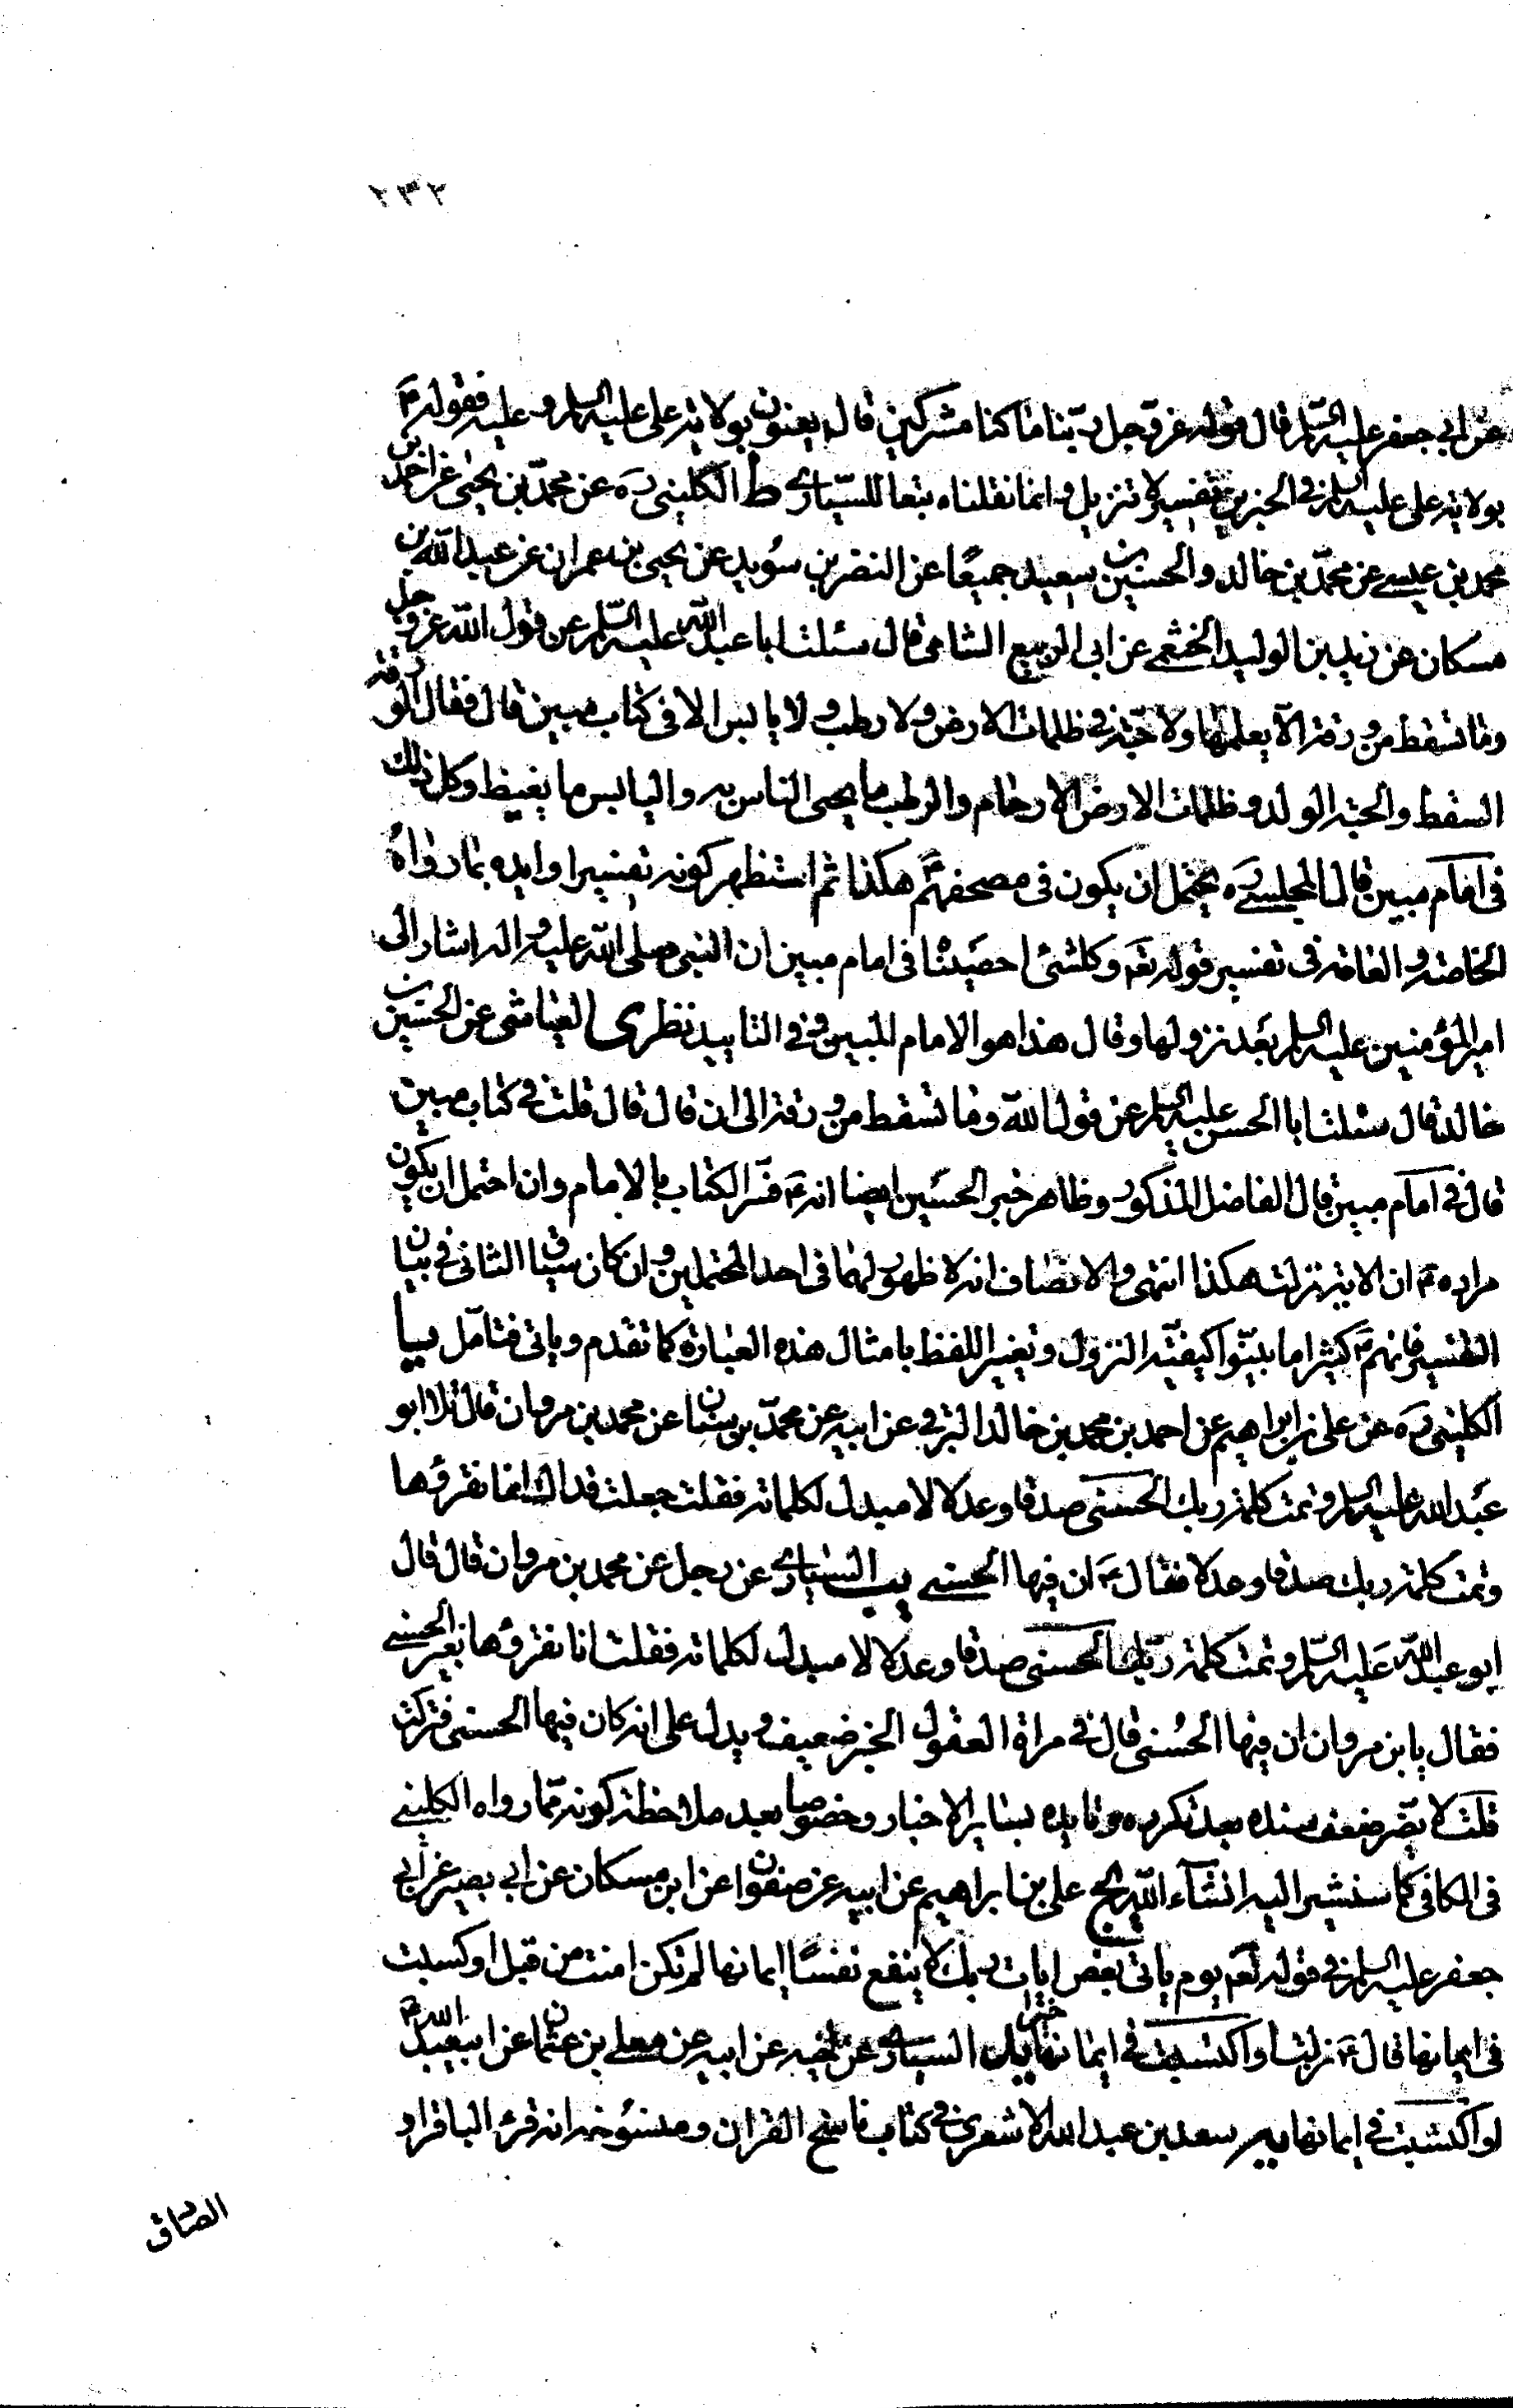 ٢٣٢
عن ابي جعفر عليه السلم قال قوله عز وجل ربنا ما كنا مشركين قال يعنون بولاية على عليه السلم وعليه فقوله ع
بولاية على عليه السلم في الخبرين تفسير لا تنزيل وانما نقلناه تبعا للسياري ط الكليني ره عن محمد بن يحيى عن احمد بن
محمد بن عيسى عن محمد بن خالد والحسين بن سعيد جميعا عن النضر بن سويد عن يحيى بن عمران عن عبد الله بن
مسكان عن زيد بن الوليد الخثعمي عن ابي الربيع الشامي قال سئلت ابا عبد الله عليه السلم عن قول الله عز وجل
وما تسقط من ورقة الا يعلمها ولا حبة في ظلمات الارض ولا رطب ولا يابس الا في كتاب مبين قال فقال الورقة
السقط والحبة الولد وظلمات الارض الارحام والرطب ما يحيى الناس به واليابس ما يغيظ وكل ذلك
في امام مبين قال المجلسي ره يحتمل ان يكون في مصحفهم هكذا ثم استظهر كونه تفسيرا وايده بما رواه
الخاصة والعامة في تفسير قوله تعم وكلشئ احصيناه في امام مبين ان النبي صلى الله عليه واله اشار الى
امير المؤمنين عليه السلم بعد نزولها وقال هذا هو الامام المبين وفي التاييد نظر ى العياشي عن الحسين بن
خالد قال سئلت ابا الحسن عليه السلم عن قول الله وما تسقط من ورقة الى ان قال قال قلت في كتاب مبين
قال في امام مبين قال الفاضل المذكور وظاهر خبر الحسين ايضا انه ع فسر الكتاب بالامام وان احتمل ان يكون
مراده ع ان الاية نزلت هكذا انتهى والانصاف انه لا ظهور لهما في احد المحتملين وان كان سياق الثاني في بيان
التفسير فانهم ع كثيرا ما بينوا كيفية النزول وتغيير اللفظ بامثال هذه العبارة كما تقدم وياتي فتامل يب ا
الكليني ره عن على بن ابراهيم عن احمد بن محمد بن خالد البرقي عن ابيه عن محمد بن سنان عن محمد بن مروان قال تلا ابو
عبد الله عليه السلم وتمت كلمة ربك الحسنى صدقا وعدلا لا مبدل لكلماته فقلت جعلت فداك انما نقرؤها
وتمت كلمة ربك صدقا وعدلا فقال ع ان فيها الحسنى يب السياري عن رجل عن محمد بن مروان قال قال
ابو عبد الله عليه السلم وتمت كلمة ربك الحسنى صدقا وعدلا لا مبدل لكلماته فقلت انا نقرؤها بغير الحسنى
فقال يا بن مروان ان فيها الحسنى قال في مراة العقول الخبر ضعيف ويدل على انه كان فيها الحسنى فتركت
قلت لا يضر ضعف سنده بعد تكرره وتايده بساير الاخبار وخصوصا بعد ملاحظة كونه مما رواه الكليني
في الكافي كما سنشير اليه انشاء الله يج على بن ابراهيم عن ابيه عن صفوان عن ابن مسكان عن ابي بصير عن ابي
جعفر عليه السلم في قوله تعم يوم ياتي بعض ايات ربك لا ينفع نفسا ايمانها لم تكن امنت من قبل او كسبت
في ايمانها قال ع نزلت او اكتسبت في ايمانها خيرا يد السياري عن اخيه عن ابيه عن معلى بن عثمان عن ابيعبد الله ع
او اكتسبت في ايمانها يه سعد بن عبد الله الاشعري في كتاب ناسخ القران ومنسوخه انه قرء الباقر او
الصادق